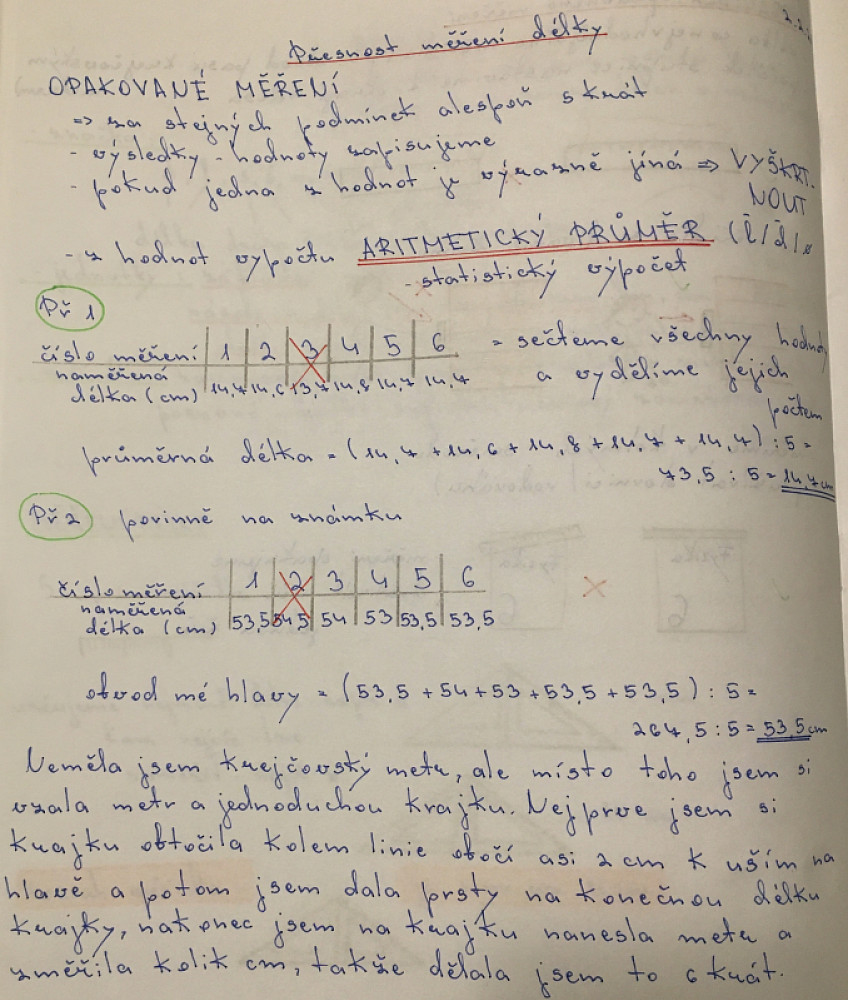 2.2.
Přesnost měření délky
OPAKOVANÉ MĚŘENÍ
=> za stejných podmínek alespoň 5 krát
- výsledky - hodnoty zapisujeme
- pokud jedna z hodnot je výrazně jiná => VYŠKRT.
NOUT
- z hodnot výpočtu ARITMETICKÝ PRŮMĚR (l̄/d̄/
- statistický výpočet
Př 1
číslo měření 1 2 3 4 5 6 = sečteme všechny hodnoty
naměřená
délka (cm) 14,7 14,6 13,7 14,8 14,7 14,7 a vydělíme jejich
počtem
průměrná délka = (14,7 + 14,6 + 14,8 + 14,7 + 14,7) : 5 =
73,5 : 5 = 14,7 cm
Př 2 povinně na známku
číslo měření 1 2 3 4 5 6
naměřená
délka (cm) 53,5 54,5 54 53 53,5 53,5
obvod mé hlavy = (53,5 + 54 + 53 + 53,5 + 53,5) : 5 =
267,5 : 5 = 53,5 cm
Neměla jsem krejčovský metr, ale místo toho jsem si
vzala metr a jednoduchou krajku. Nejprve jsem si
krajku obtočila kolem linie obočí asi 2 cm k uším na
hlavě a potom jsem dala prsty na konečnou délku
krajky, nakonec jsem na krajku nanesla metr a
změřila kolik cm, takže dělala jsem to 6 krát.